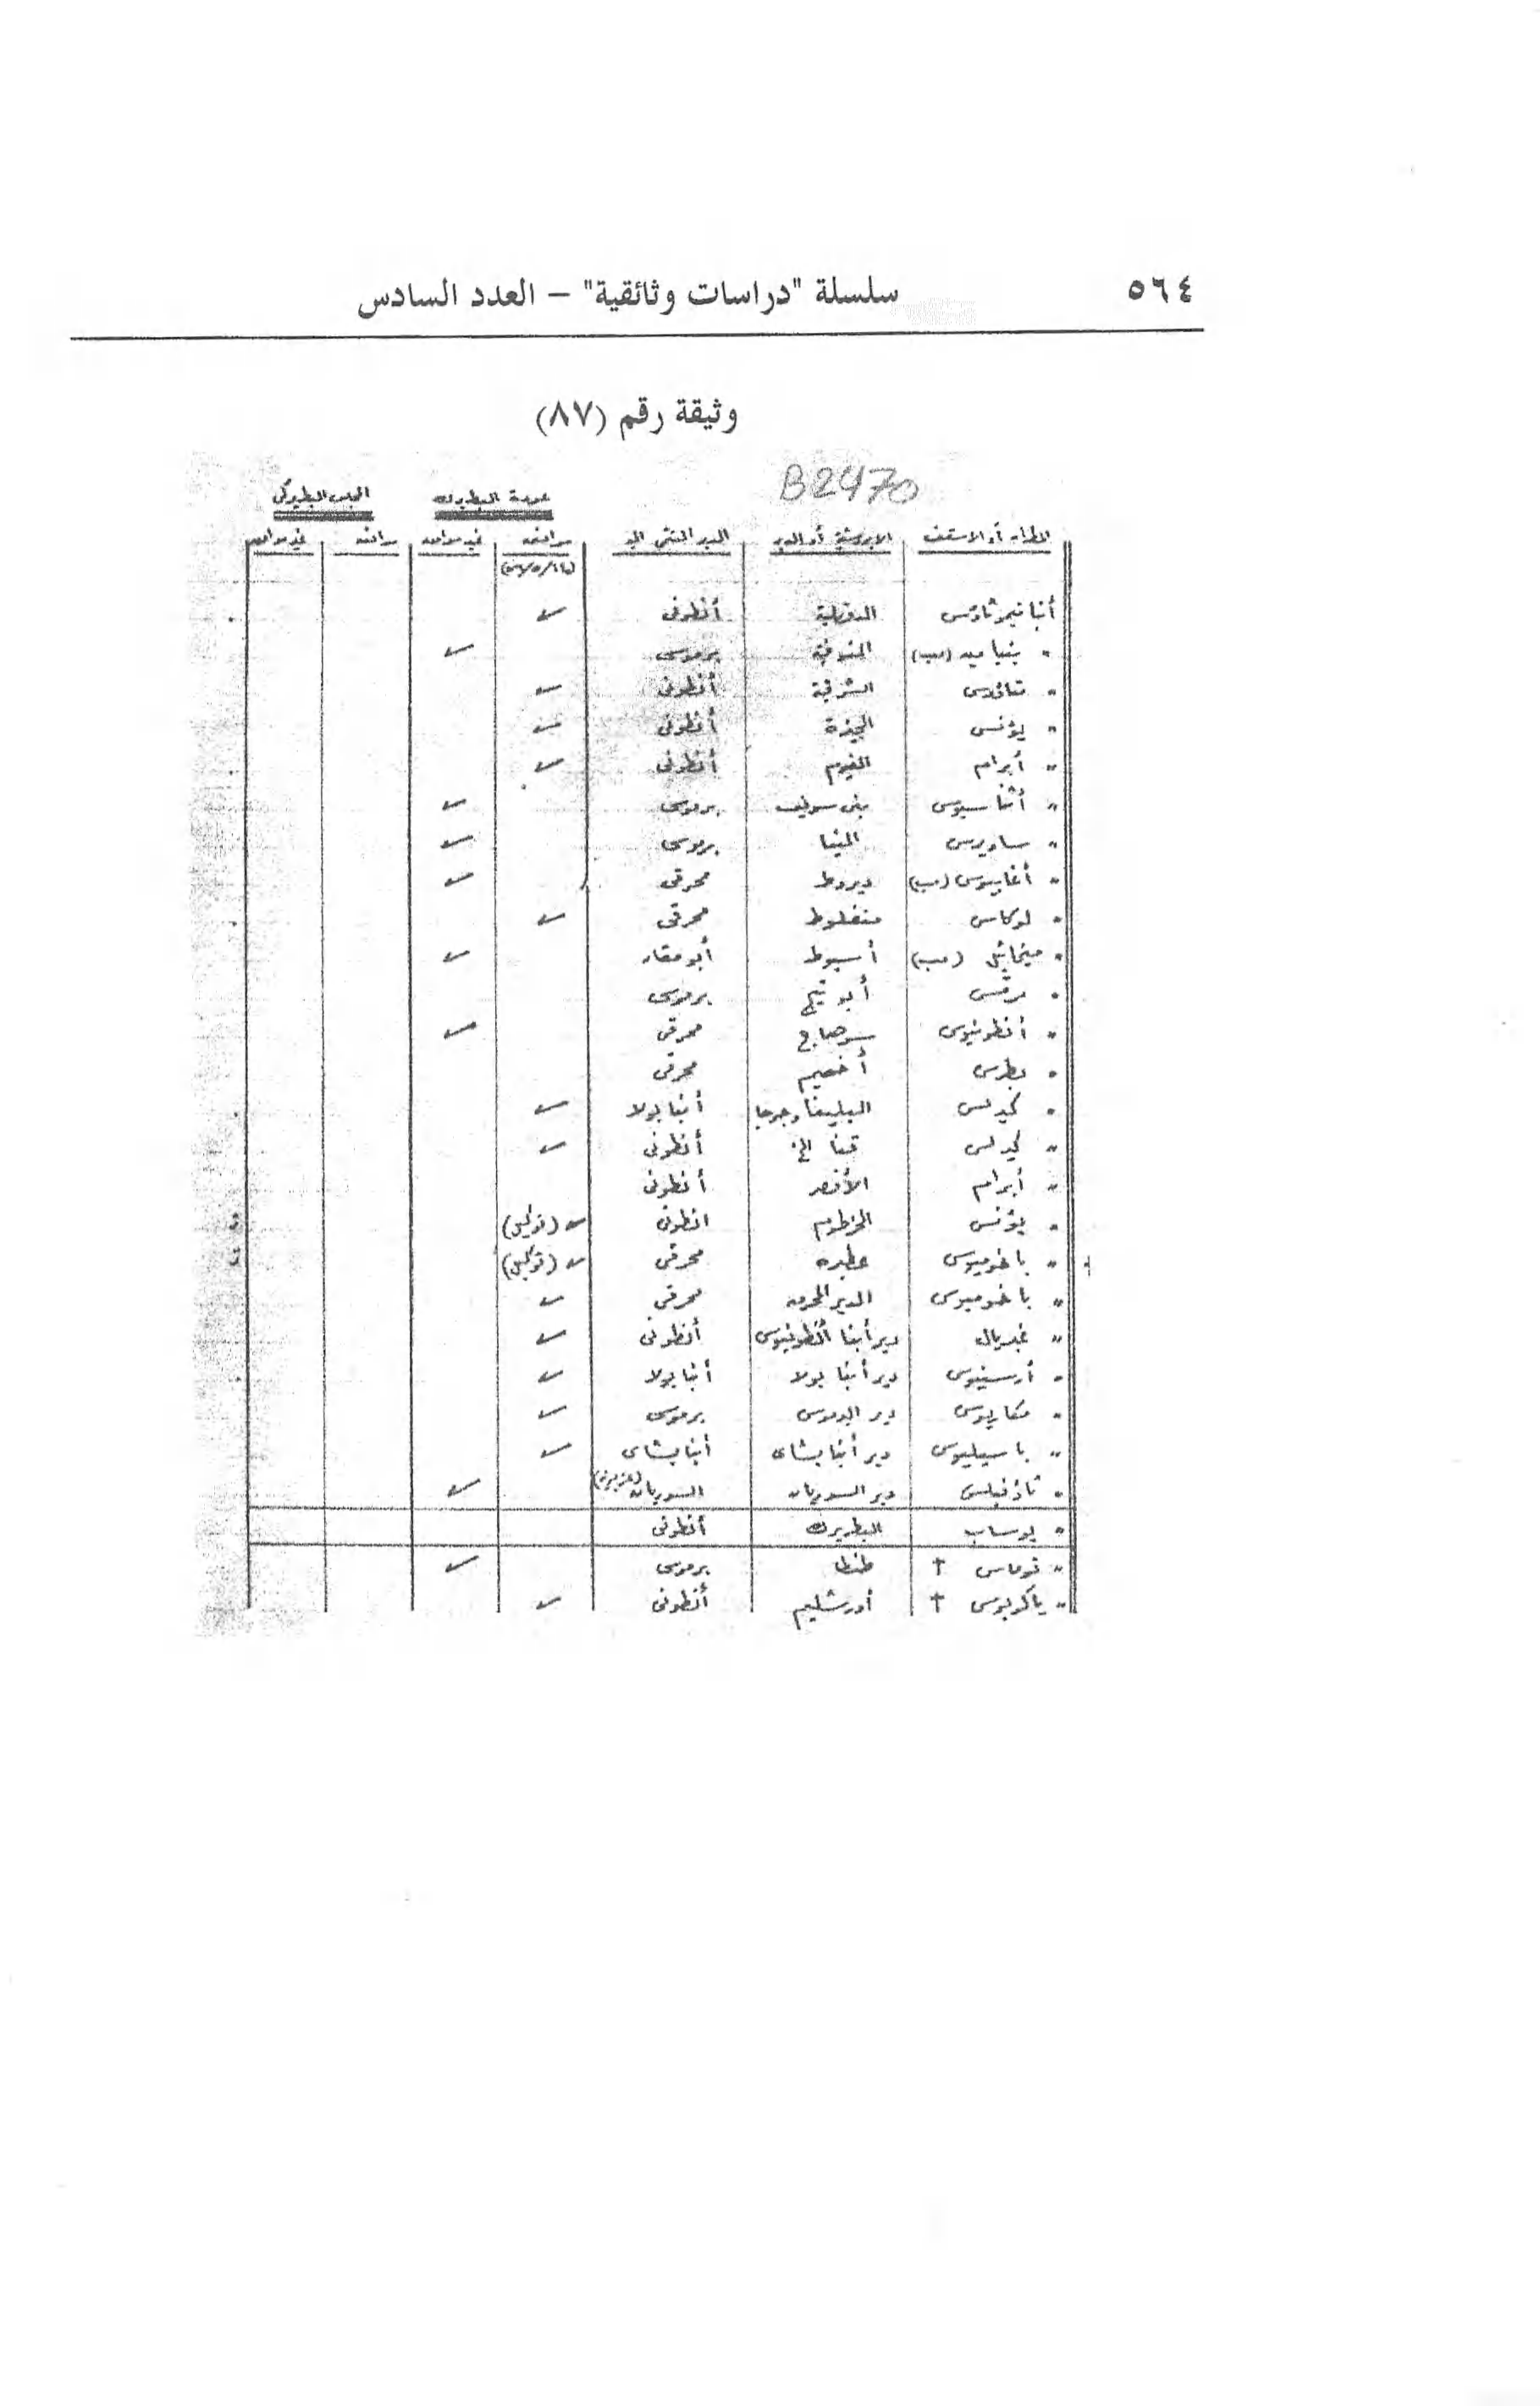 ٥٦٤ سلسلة "دراسات وثائقية" – العدد السادس
وثيقة رقم (٨٧)
B2470
عودة البطريرك المجلس البطريركى
المطران أو الاسقف الابروشية أو الدير الدير المنتمى اليه موافق غير موافق موافق غير موافق
أنبا تيموثاوس الدقهلية أنطونى ✓
" بنيامين المنوفية برموسى ✓
" الشرقية أنطونى ✓
" يؤنس الجيزة أنطونى ✓
" أبرام الفيوم أنطونى ✓
" أثناسيوس بنى سويف برموسى ✓
" ساويرس المنيا برموسى ✓
" أغابيوس ديروط محرقى ✓
" لوكاس منفلوط محرقى ✓
" ميخائيل أسيوط أبو مقار ✓
" مرقس أبو تيج برموسى
" أنطونيوس سوهاج محرقى ✓
" بطرس أخميم محرقى
" كيرلس البلينا وجرجا أنبا بولا ✓
" كيرلس قنا الخ أنطونى ✓
" أبرام الأقصر أنطونى
" يؤنس الخرطوم انطونى ✓ (توكيل)
" باخوميوس عطبره محرقى ✓ (توكيل)
" باخوميوس الدير المحرق محرقى ✓
" غبريال دير أنبا أنطونيوس أنطونى ✓
" أرسنيوس دير أنبا بولا أنبا بولا ✓
" مكاريوس دير البرموس برموسى ✓
" باسيليوس دير أنبا بشاى أنبا بشاى ✓
" ثاؤفيلس دير السوريان السوريان ✓
" يوساب البطريرك أنطونى
" توماس † طنطا برموسى ✓
" ياكوبوس † أورشليم أنطونى ✓